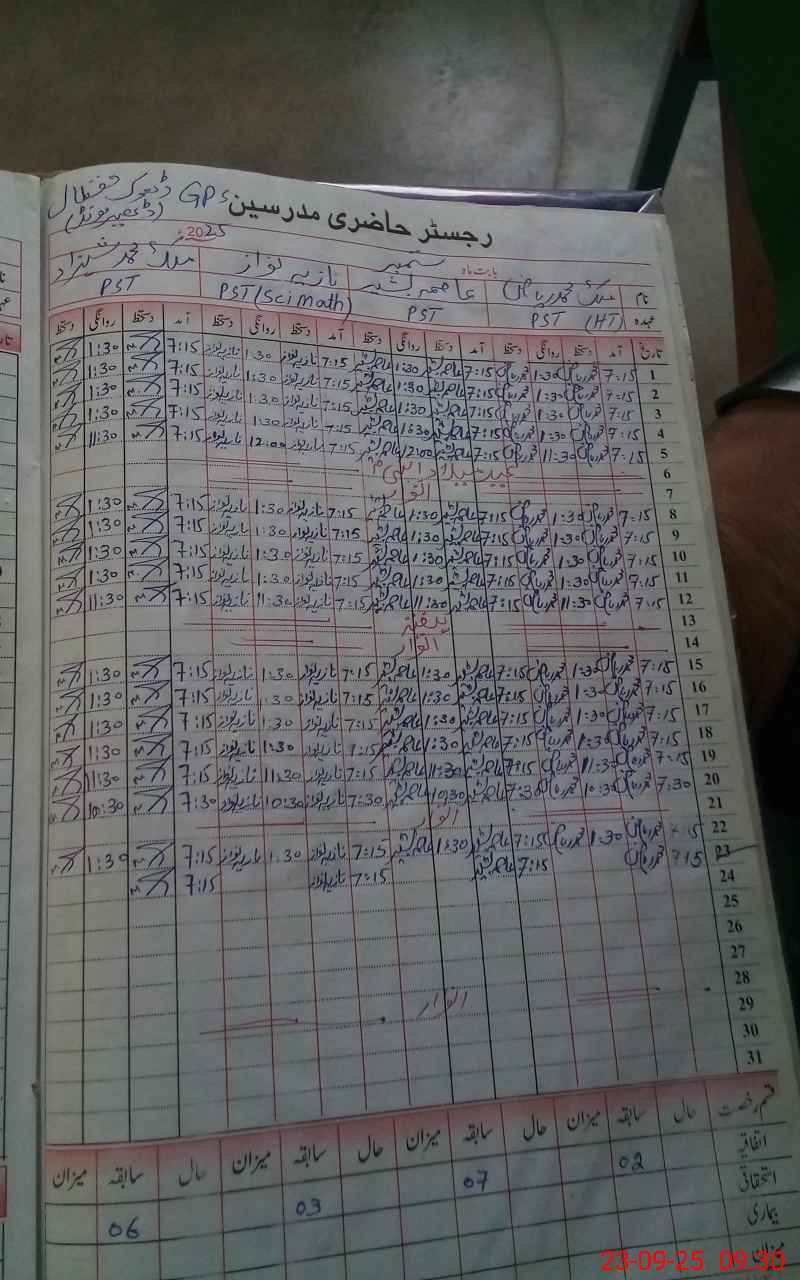 GPS ڈھوک
رجسٹر حاضری مدرسین
2025
بابت ماہ ستمبر
نام ملک محمد ریاض عاصمہ بشیر نازیہ نواز ملک محمد شہزاد
عہدہ PST (HT) PST PST (Sci Math) PST
تاریخ آمد دستخط روانگی دستخط آمد دستخط روانگی دستخط آمد دستخط روانگی دستخط آمد دستخط روانگی دستخط
1 7:15 محمد ریاض 1:30 محمد ریاض 7:15 عاصمہ بشیر 1:30 عاصمہ بشیر 7:15 نازیہ نواز 1:30 نازیہ نواز 7:15 1:30
2 7:15 محمد ریاض 1:30 محمد ریاض 7:15 عاصمہ بشیر 1:30 عاصمہ بشیر 7:15 نازیہ نواز 1:30 نازیہ نواز 7:15 1:30
3 7:15 محمد ریاض 1:30 محمد ریاض 7:15 عاصمہ بشیر 1:30 عاصمہ بشیر 7:15 نازیہ نواز 1:30 نازیہ نواز 7:15 1:30
4 7:15 محمد ریاض 1:30 محمد ریاض 7:15 عاصمہ بشیر 1:30 عاصمہ بشیر 7:15 نازیہ نواز 1:30 نازیہ نواز 7:15 1:30
5 7:15 محمد ریاض 11:30 محمد ریاض 7:15 عاصمہ بشیر 12:00 عاصمہ بشیر 7:15 نازیہ نواز 12:00 نازیہ نواز 7:15 11:30
6 عید میلاد النبی
7 اتوار
8 7:15 محمد ریاض 1:30 محمد ریاض 7:15 عاصمہ بشیر 1:30 عاصمہ بشیر 7:15 نازیہ نواز 1:30 نازیہ نواز 7:15 1:30
9 7:15 محمد ریاض 1:30 محمد ریاض 7:15 عاصمہ بشیر 1:30 عاصمہ بشیر 7:15 نازیہ نواز 1:30 نازیہ نواز 7:15 1:30
10 7:15 محمد ریاض 1:30 محمد ریاض 7:15 عاصمہ بشیر 1:30 عاصمہ بشیر 7:15 نازیہ نواز 1:30 نازیہ نواز 7:15 1:30
11 7:15 محمد ریاض 1:30 محمد ریاض 7:15 عاصمہ بشیر 1:30 عاصمہ بشیر 7:15 نازیہ نواز 1:30 نازیہ نواز 7:15 1:30
12 7:15 محمد ریاض 11:30 محمد ریاض 7:15 عاصمہ بشیر 11:30 عاصمہ بشیر 7:15 نازیہ نواز 11:30 نازیہ نواز 7:15 11:30
13 ہفتہ
14 اتوار
15 7:15 محمد ریاض 1:30 محمد ریاض 7:15 عاصمہ بشیر 1:30 عاصمہ بشیر 7:15 نازیہ نواز 1:30 نازیہ نواز 7:15 1:30
16 7:15 محمد ریاض 1:30 محمد ریاض 7:15 عاصمہ بشیر 1:30 عاصمہ بشیر 7:15 نازیہ نواز 1:30 نازیہ نواز 7:15 1:30
17 7:15 محمد ریاض 1:30 محمد ریاض 7:15 عاصمہ بشیر 1:30 عاصمہ بشیر 7:15 نازیہ نواز 1:30 نازیہ نواز 7:15 1:30
18 7:15 محمد ریاض 1:30 محمد ریاض 7:15 عاصمہ بشیر 1:30 عاصمہ بشیر 7:15 نازیہ نواز 1:30 نازیہ نواز 7:15 1:30
19 7:15 محمد ریاض 11:30 محمد ریاض 7:15 عاصمہ بشیر 11:30 عاصمہ بشیر 7:15 نازیہ نواز 11:30 نازیہ نواز 7:15 11:30
20 7:30 محمد ریاض 10:30 محمد ریاض 7:30 عاصمہ بشیر 10:30 عاصمہ بشیر 7:30 نازیہ نواز 10:30 نازیہ نواز 7:30 10:30
21 اتوار
22 7:15 محمد ریاض 1:30 محمد ریاض 7:15 عاصمہ بشیر 1:30 عاصمہ بشیر 7:15 نازیہ نواز 1:30 نازیہ نواز 7:15 1:30
23 7:15 محمد ریاض 7:15 عاصمہ بشیر 7:15 نازیہ نواز 7:15
24
25
26
27
28 اتوار
29
30
31
قسم رخصت حال سابقہ میزان حال سابقہ میزان حال سابقہ میزان حال سابقہ میزان
اتفاقیہ 02 07 03 06
استحقاقی
بیماری
میزان
23-09-25 09:30